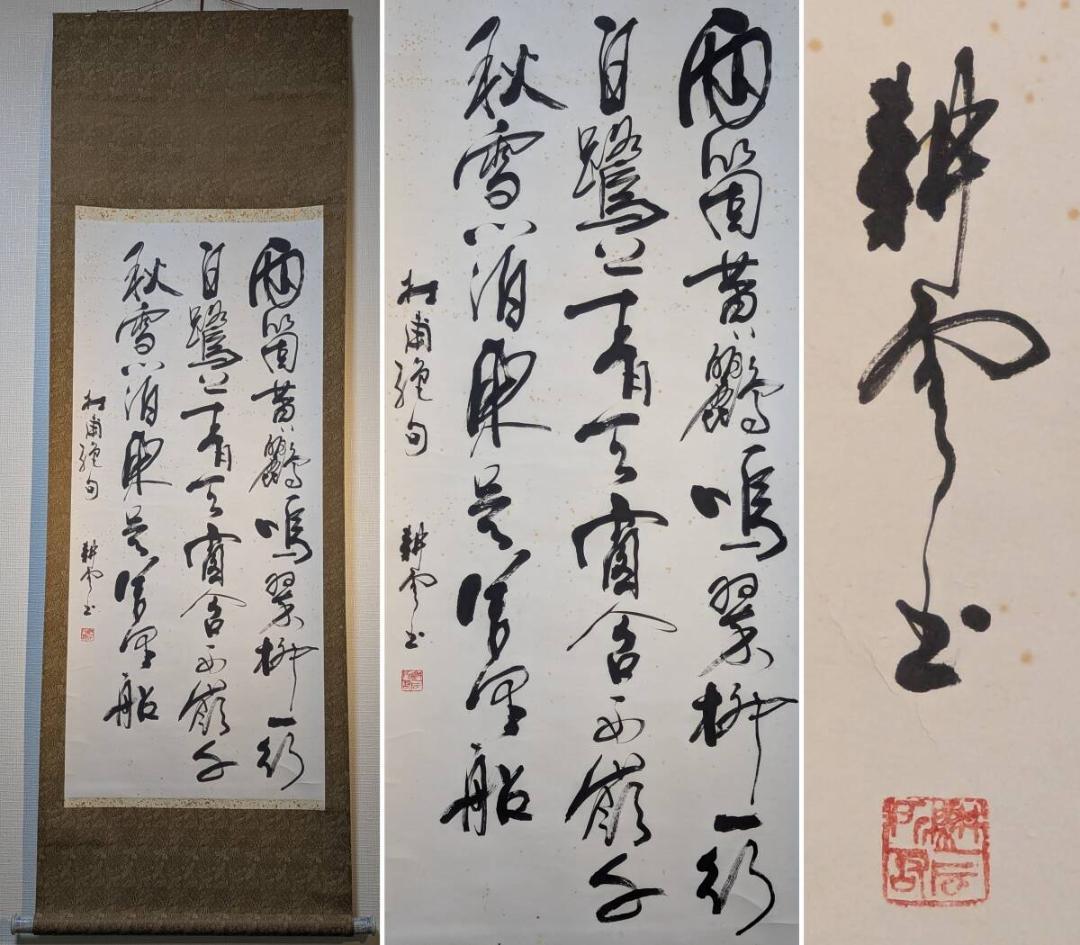 兩箇黄鸝鳴翠柳一行
白鷺上青天窗含西嶺千
秋雪門泊東吳萬里船
杜甫絶句 耕雲書
兩箇黄鸝鳴翠柳一行
白鷺上青天窗含西嶺千
秋雪門泊東吳萬里船
杜甫絶句 耕雲書
耕雲書